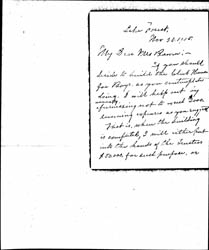 Lake Forest,
Nov 22. 1915.
My Dear Mrs Brown:-
If you should
decide to build the Club House
for Boys, as you contemplate
doing, I will help out in
furnishing not to exceed
running expenses as you suggest
That is, when the building
is completed, I will either put
into the hands of the Trustees
for such purpose, or